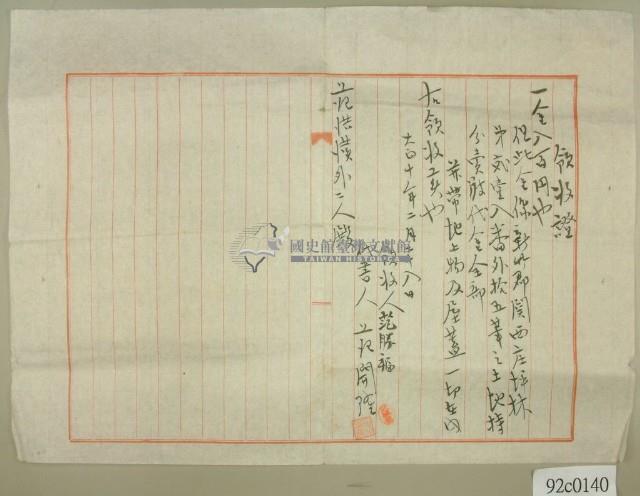 領收證
一金八百円也
但此金係新竹郡関西庄坪林
第弍壹八番外拾五筆之土地持
分賣殘代金全部
並帶地上物及屋蓋一切在內
右領收女也
大正十年二月十八日
領收人 范勝福
代書人 范開隆
范洪濱外二人殿
國史館臺灣文獻館
TAIWAN HISTORICA
92c0140